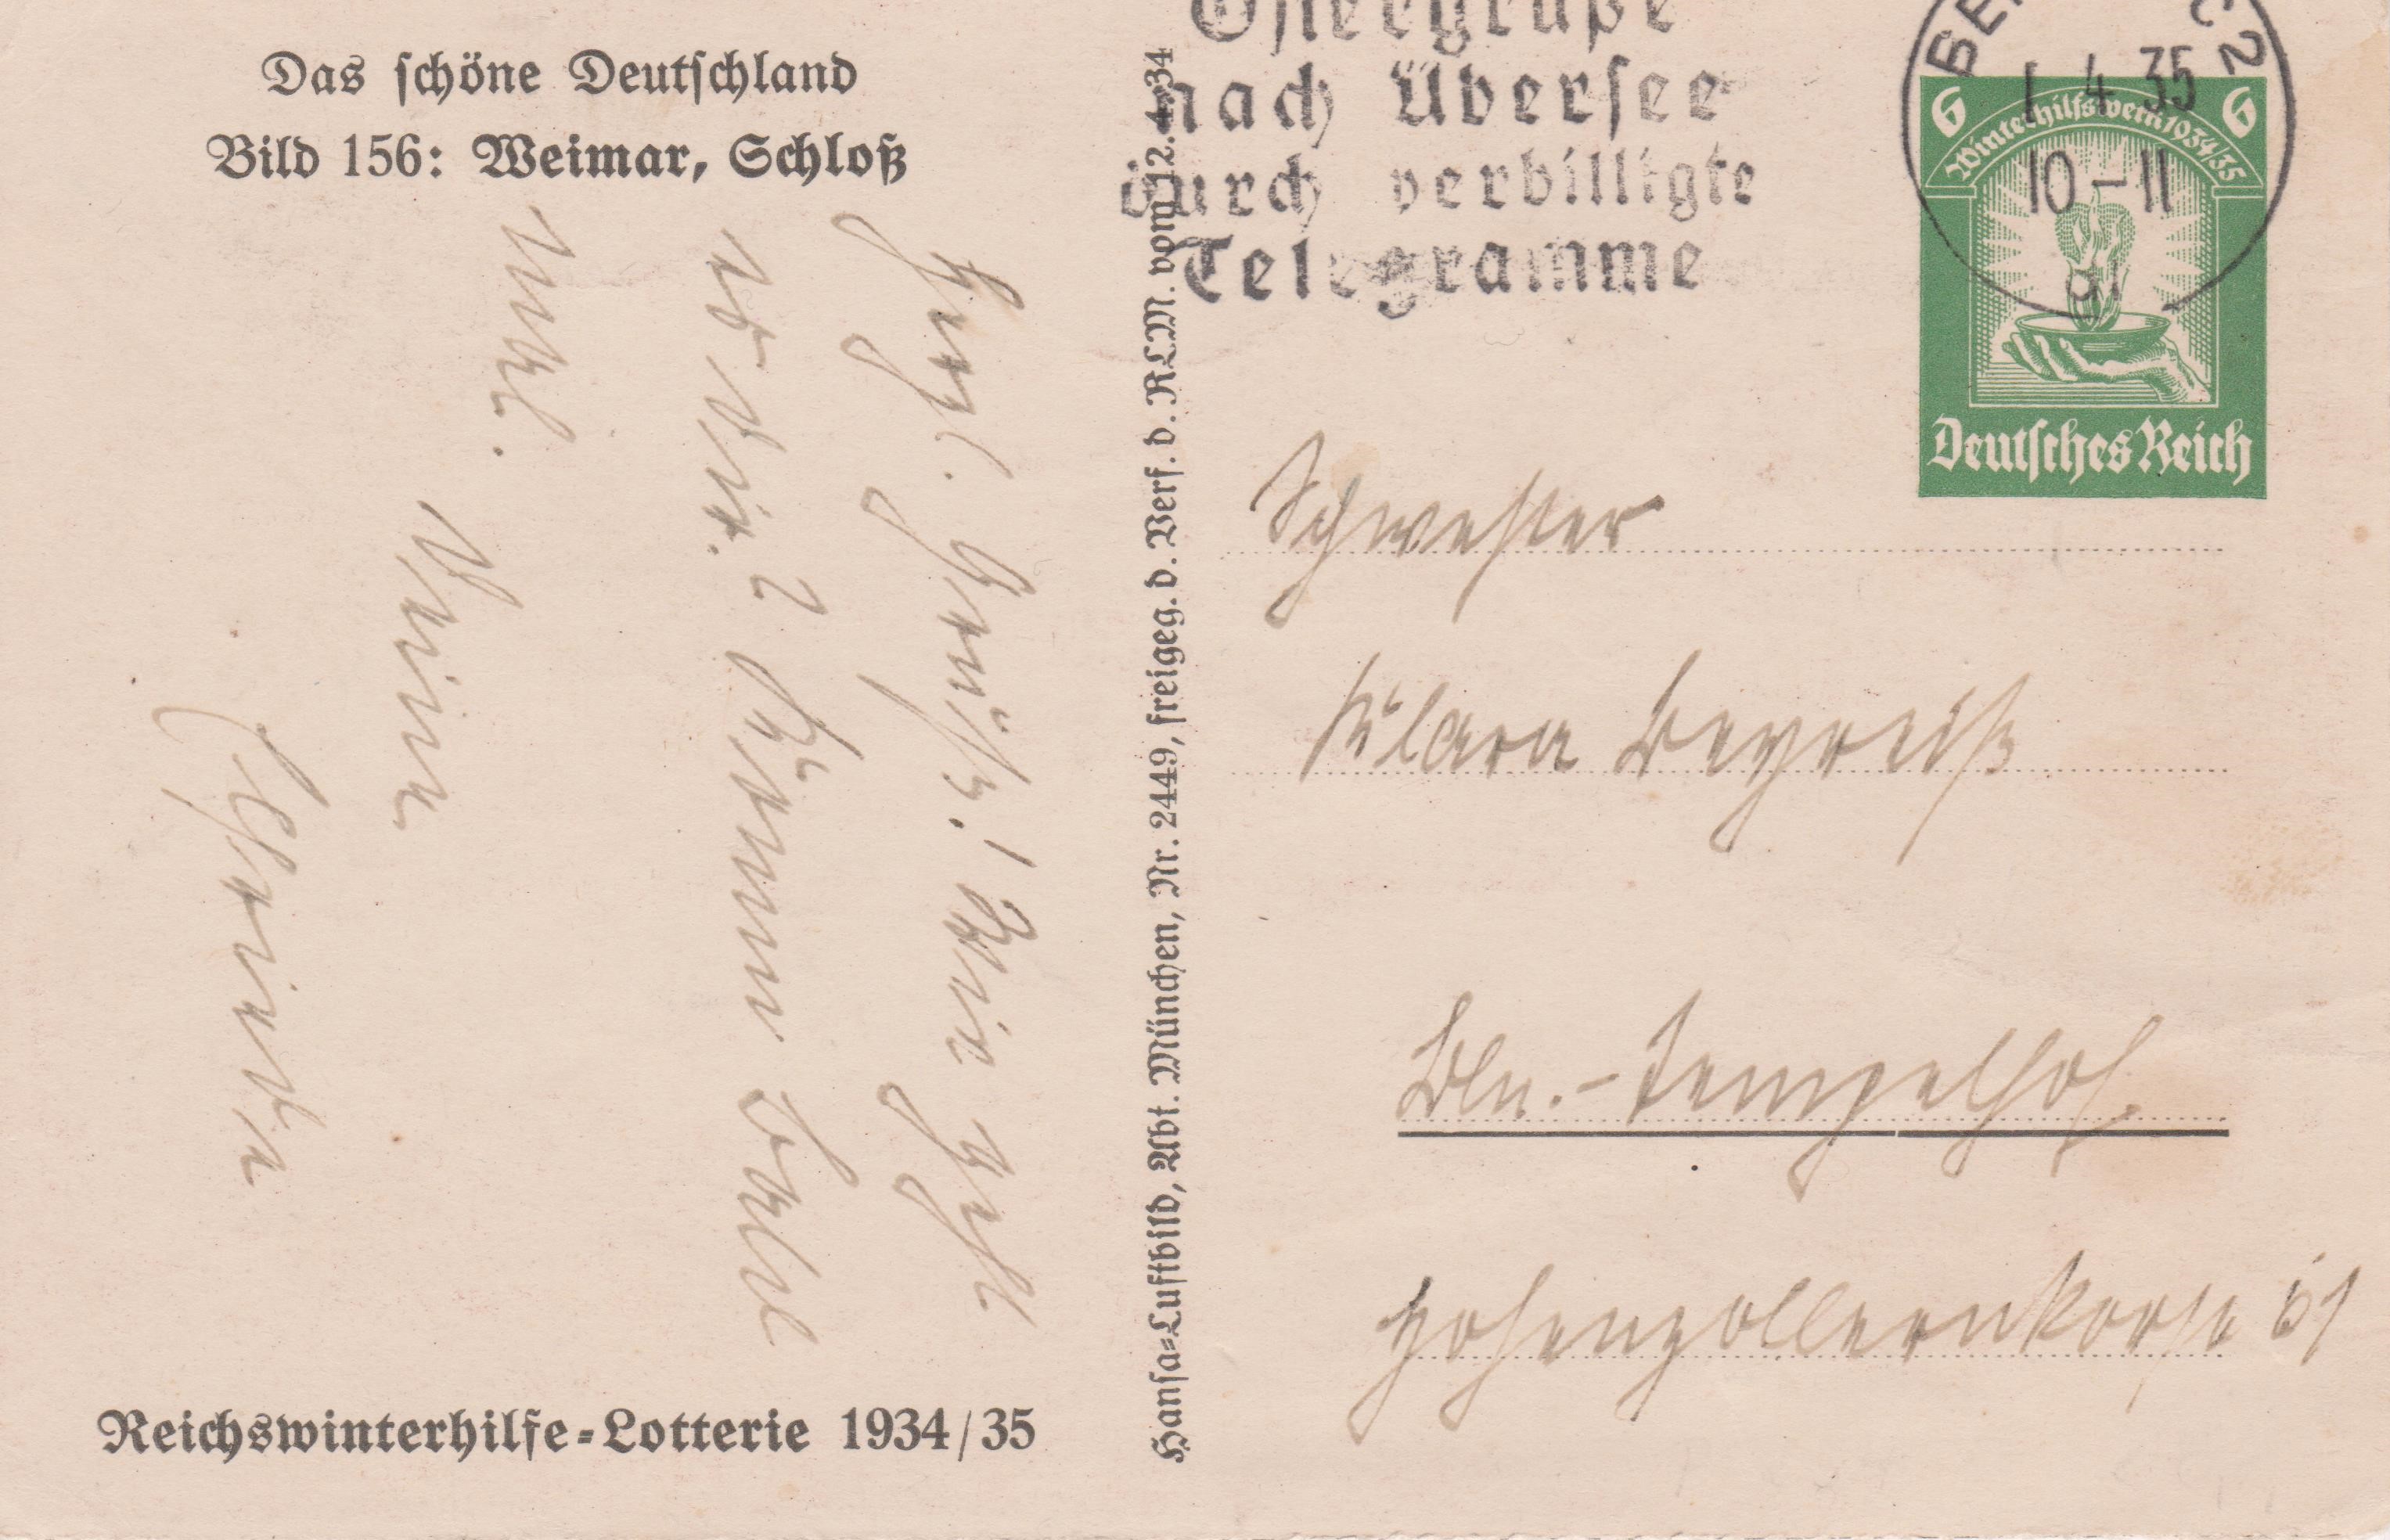 Das schöne Deutschland
Bild 156: Weimar, Schloß
Herzl. Grüße! Wie geht
es Dir? Komme bald
mal.
Deine
Reichswinterhilfe-Lotterie 1934/35
Hansa-Luftbild, Abt. München, Nr. 2449, freigeg. d. Verf. d. RLM. vom 12. 4. 34
Ostergrüße
nach Übersee
durch verbilligte
Telegramme
C 2
1 4 35
10-11
6 6
Winterhilfswerk 1934/35
Deutsches Reich
Schwester
Klara Beyreiß
Bln.-Tempelhof.
Hohenzollernkorso 61